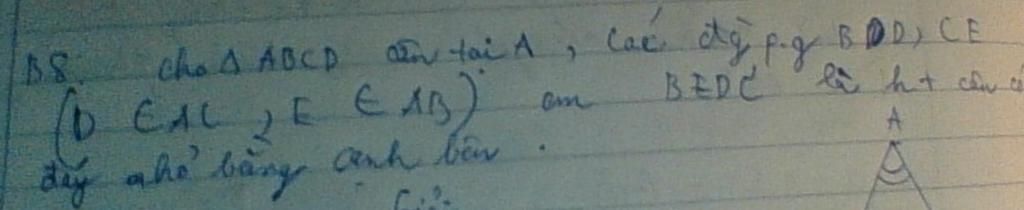 B8. Cho Δ ABCD cân tại A, các đg p.g BD, CE
(D ∈ AC, E ∈ AB) cm BEDC là ht cân có
đáy nhỏ bằng cạnh bên.
A